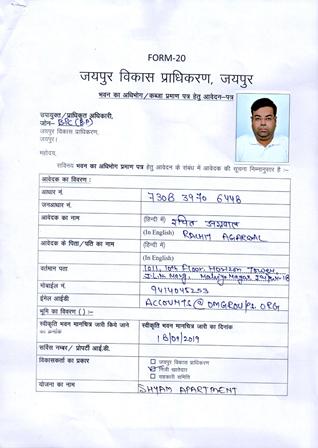 FORM-20
जयपुर विकास प्राधिकरण, जयपुर
भवन का अधिभोग/कब्जा प्रमाण पत्र हेतु आवेदन-पत्र
उपायुक्त/प्राधिकृत अधिकारी,
जोन- BPC (BP)
जयपुर विकास प्राधिकरण,
जयपुर।
महोदय,
सविनय भवन का अधिभोग प्रमाण पत्र हेतु आवेदन के संबंध में आवेदक की सूचना निम्नानुसार है :-
आवेदक का विवरण :
आधार नं. 7308 3970 6448
जनआधार नं.
आवेदक का नाम (हिन्दी में) रचित अग्रवाल
(In English) RACHIT AGARWAL
आवेदक के पिता/पति का नाम (हिन्दी में)
(In English)
वर्तमान पता 1011, 10th Floor, Horizon Tower,
J.L.N Marg, Malviya Nagar, Jaipur-18
मोबाईल नं. 9414045253
ईमेल आईडी ACCOUNTS@OMGROUP1.ORG
भूमि का विवरण () :-
स्वीकृति भवन मानचित्र जारी किये जाने का क्रमांक
स्वीकृति भवन मानचित्र जारी का दिनांक
18/09/2019
सर्विस नम्बर/ प्रोपर्टी आई.डी.
विकासकर्ता का प्रकार
जयपुर विकास प्राधिकरण
निजी खातेदार
सहकारी समिति
योजना का नाम SHYAM APARTMENT